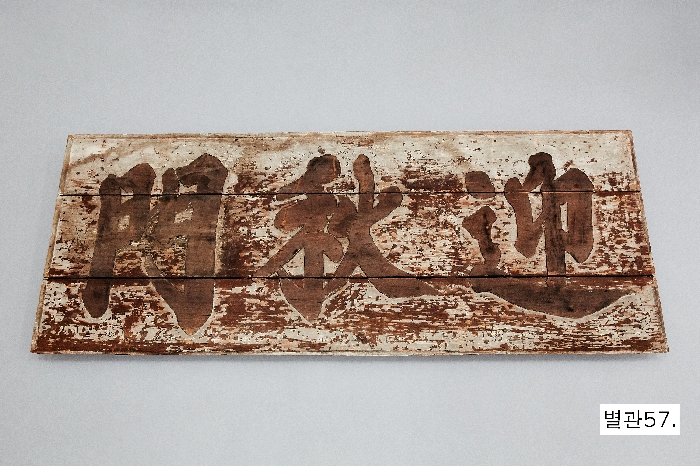 迎秋門
별관57.